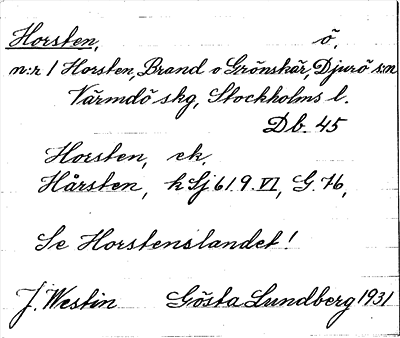 Horsten, ö.
n:r 1 Horsten, Brand o Grönskär, Djurö s:n
Värmdö skg, Stockholms l.
Db. 45
Horsten, ek.
Hårsten, k Sj 61 9. VI, G. 76,
Se Horstenslandet!
J. Westin Gösta Lundberg 1931